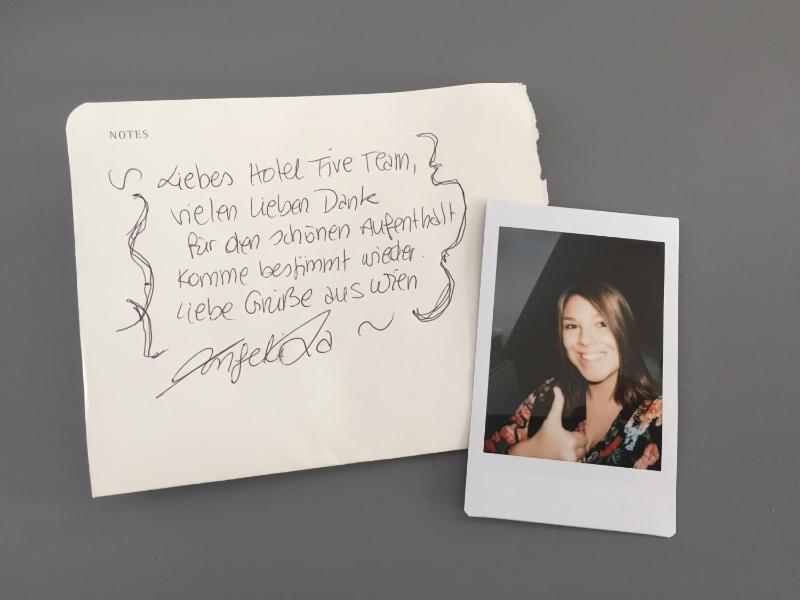 NOTES
Liebes Hotel Five Team,
vielen lieben Dank
für den schönen Aufenthalt
komme bestimmt wieder.
Liebe Grüße aus Wien